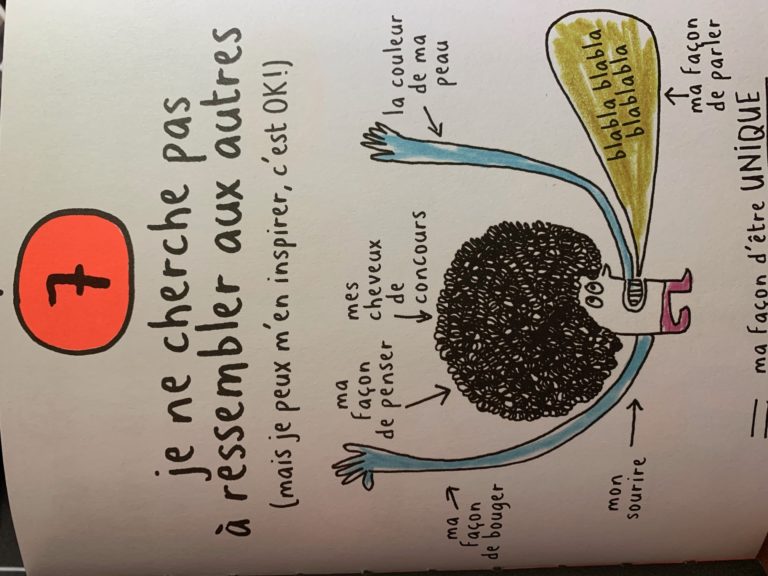 7
je ne cherche pas
à ressembler aux autres
(mais je peux m'en inspirer, c'est OK!)
ma
façon
de penser
mes
cheveux
de
concours
la couleur
de ma
peau
ma
façon
de bouger
blabla blabla
blablabla
mon
sourire
ma façon
de parler
= ma façon d'être UNIQUE